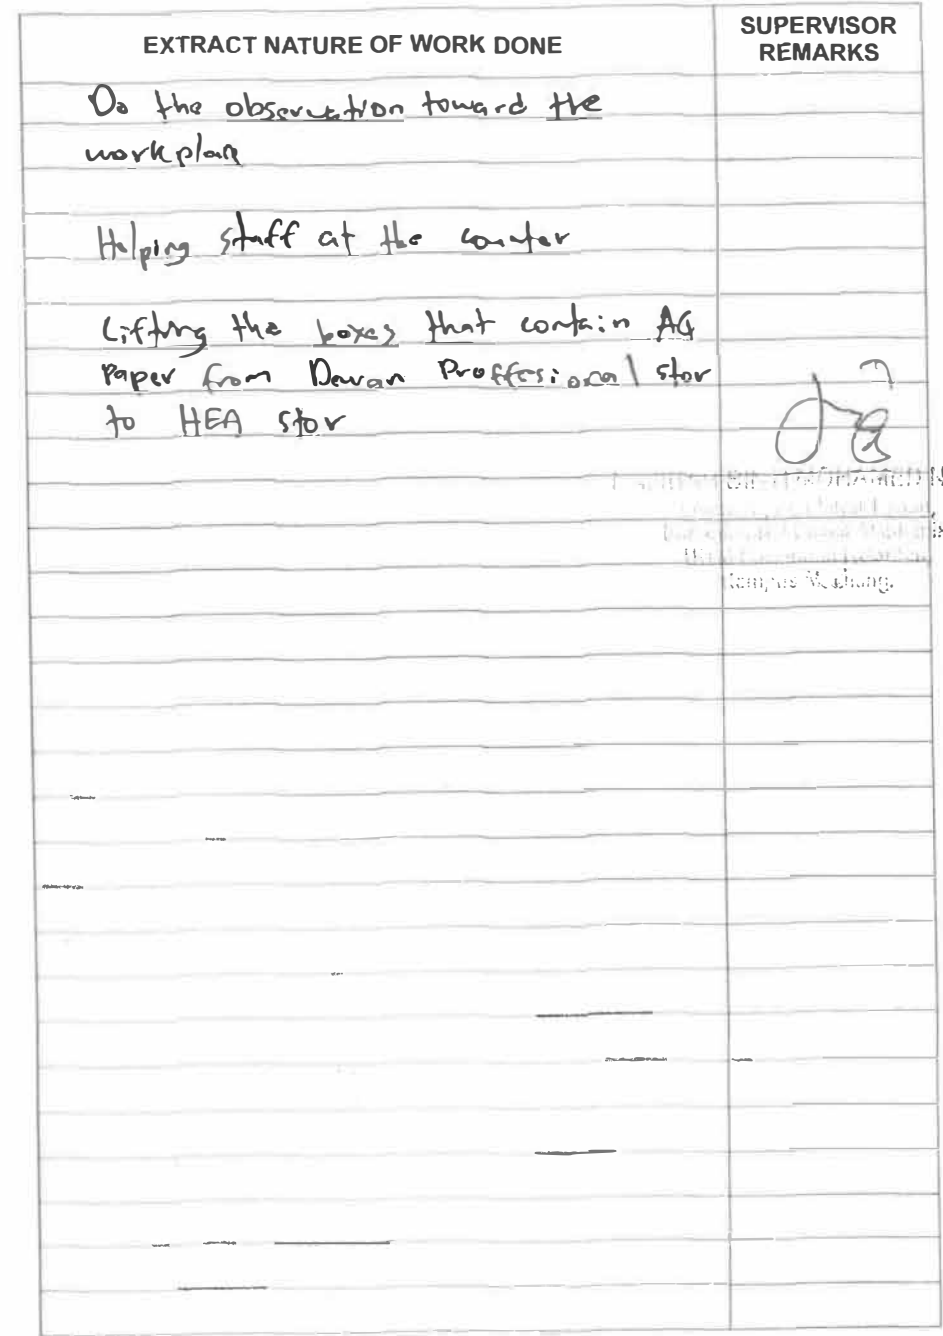 EXTRACT NATURE OF WORK DONE
SUPERVISOR
REMARKS
Do the observation toward the
workplace
Helping staff at the counter
Lifting the boxes that contain A4
Paper from Dewan Proffesional stor
to HEA stor
Kampus Machang.